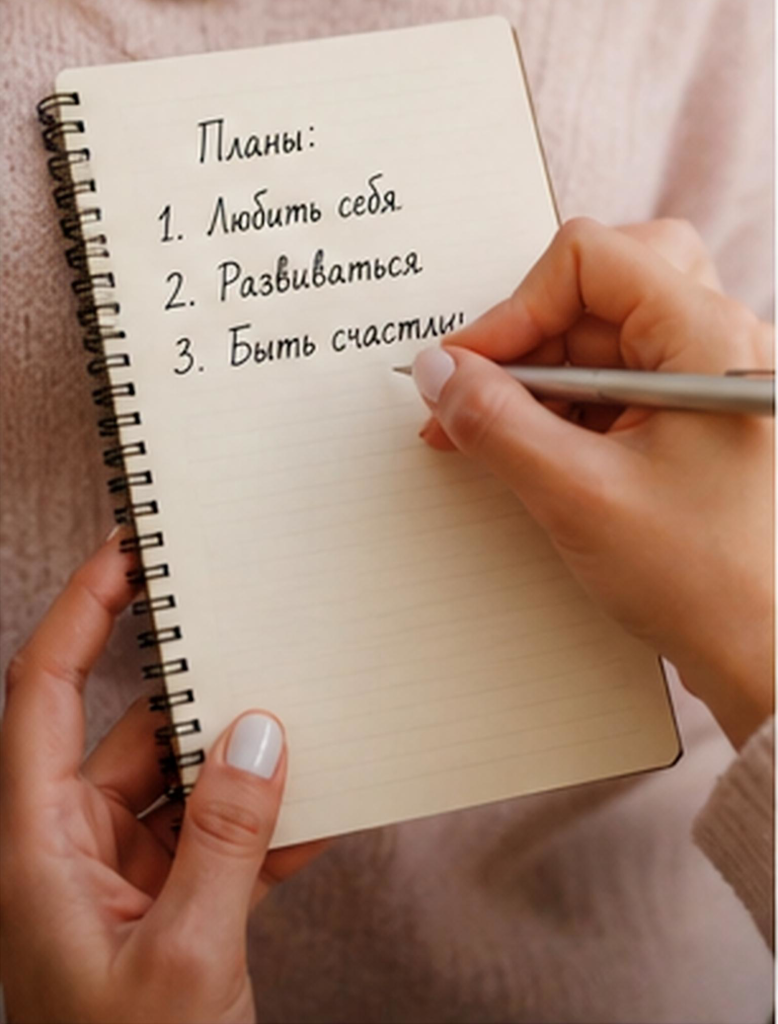 Планы:
1. Любить себя
2. Развиваться
3. Быть